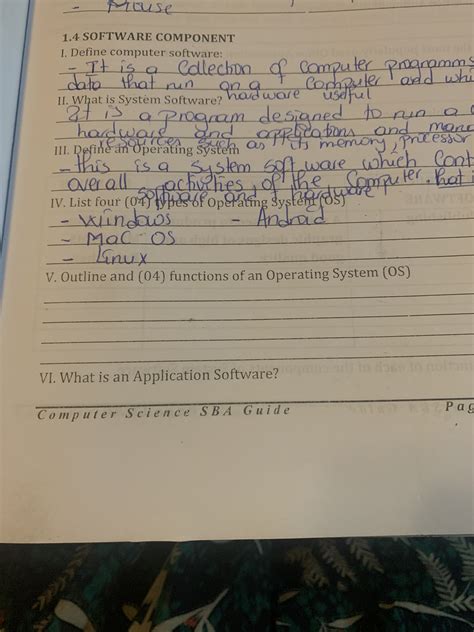 - Mouse
1.4 SOFTWARE COMPONENT
I. Define computer software:
- It is a Collection of Computer programms
data that run on a Computer and whi
hardware useful
II. What is System Software?
It is a program designed to run a
hardware and applications and mana
resources such as its memory, processor
III. Define an Operating System
- this is a System software which Cont
overall activities of the Computer. that i
software and hardware
IV. List four (04) types of Operating System (OS)
- Windows - Android
- Mac-OS
- Linux
V. Outline and (04) functions of an Operating System (OS)
VI. What is an Application Software?
Computer Science SBA Guide Pag